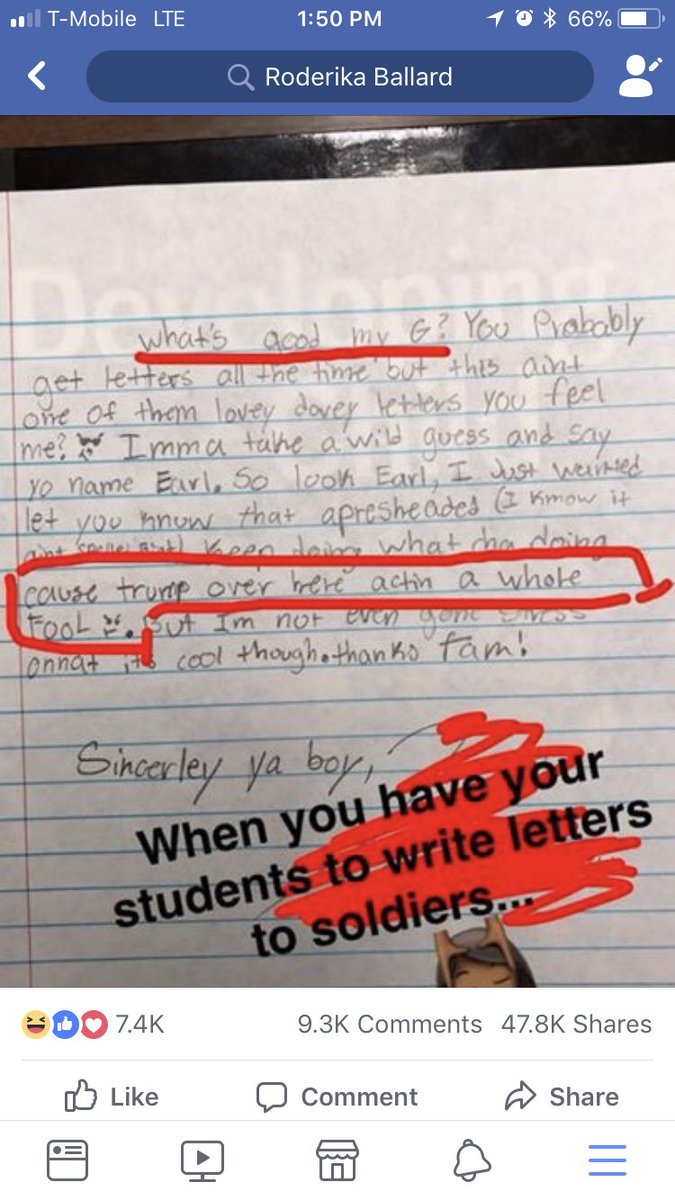 T-Mobile LTE 1:50 PM 66%
Roderika Ballard
Developing
what's good my G? You Probably
get letters all the time but this aint
one of them lovey dovey letters you feel
me? Imma take a wild guess and say
yo name Earl. So look Earl, I Just wanted
let you know that apresheaded (I know it
aint Right) Keep doing what cha doing
cause trump over here actin a whole
FooL. But Im not even gone stress
onnat its cool though. thanks fam!
Sincerley ya boy,
When you have your
students to write letters
to soldiers...
7.4K 9.3K Comments 47.8K Shares
Like Comment Share